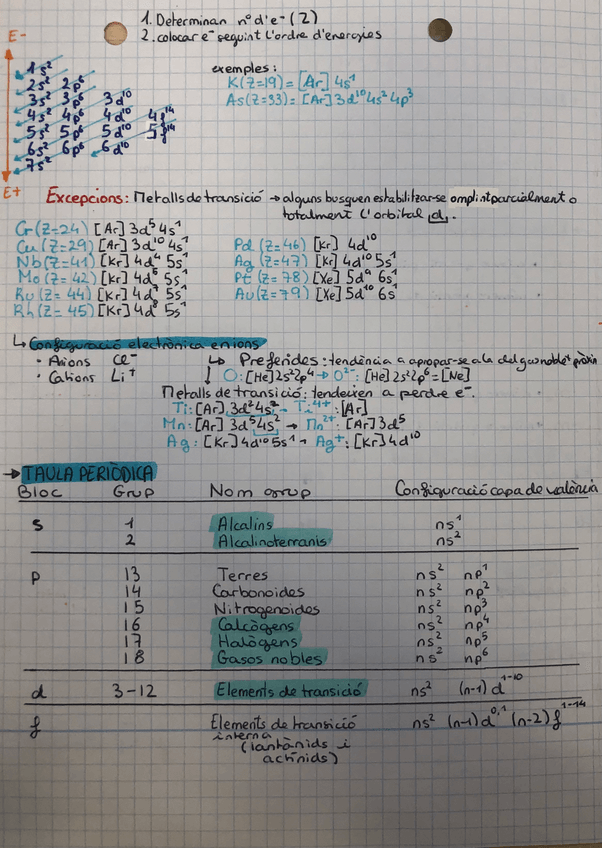 1. Determinan nº d'e⁻ (Z)
2. colocar e⁻ seguint l'ordre d'energies
E-
1s²
2s² 2p⁶
3s² 3p⁶ 3d¹⁰
4s² 4p⁶ 4d¹⁰ 4f¹⁴
5s² 5p⁶ 5d¹⁰ 5f¹⁴
6s² 6p⁶ 6d¹⁰
7s²
E+
exemples:
K(Z=19) = [Ar] 4s¹
As(Z=33) = [Ar] 3d¹⁰ 4s² 4p³
Excepcions: Metalls de transició → alguns busquen estabilitzar-se omplint parcialment o
totalment l'orbital d.
Cr (Z=24) [Ar] 3d⁵ 4s¹
Cu (Z=29) [Ar] 3d¹⁰ 4s¹
Nb (Z=41) [Kr] 4d⁴ 5s¹
Mo (Z=42) [Kr] 4d⁵ 5s¹
Ru (Z=44) [Kr] 4d⁷ 5s¹
Rh (Z=45) [Kr] 4d⁸ 5s¹
Pd (Z=46) [Kr] 4d¹⁰
Ag (Z=47) [Kr] 4d¹⁰ 5s¹
Pt (Z=78) [Xe] 5d⁹ 6s¹
Au (Z=79) [Xe] 5d¹⁰ 6s¹
↳ Configuració electrònica en ions
· Anions Cl⁻
· Cations Li⁺
↳ Preferides: tendència a apropar-se a la del gas noble + pròxim
↓ O: [He] 2s² 2p⁴ → O²⁻: [He] 2s² 2p⁶ = [Ne]
Metalls de transició: tendeixen a perdre e⁻.
Ti: [Ar] 3d² 4s² → Ti⁴⁺: [Ar]
Mn: [Ar] 3d⁵ 4s² → Mn²⁺: [Ar] 3d⁵
Ag: [Kr] 4d¹⁰ 5s¹ → Ag⁺: [Kr] 4d¹⁰
→ TAULA PERIÒDICA
Bloc Grup Nom grup Configuració capa de valència
s 1 Alcalins ns¹
2 Alcalinoterranis ns²
p 13 Terres ns² np¹
14 Carbonoides ns² np²
15 Nitrogenoides ns² np³
16 Calcògens ns² np⁴
17 Halògens ns² np⁵
18 Gasos nobles ns² np⁶
d 3-12 Elements de transició ns² (n-1)d¹⁻¹⁰
f Elements de transició ns² (n-1)d⁰,¹ (n-2)f¹⁻¹⁴
interna
(lantànids i
actínids)